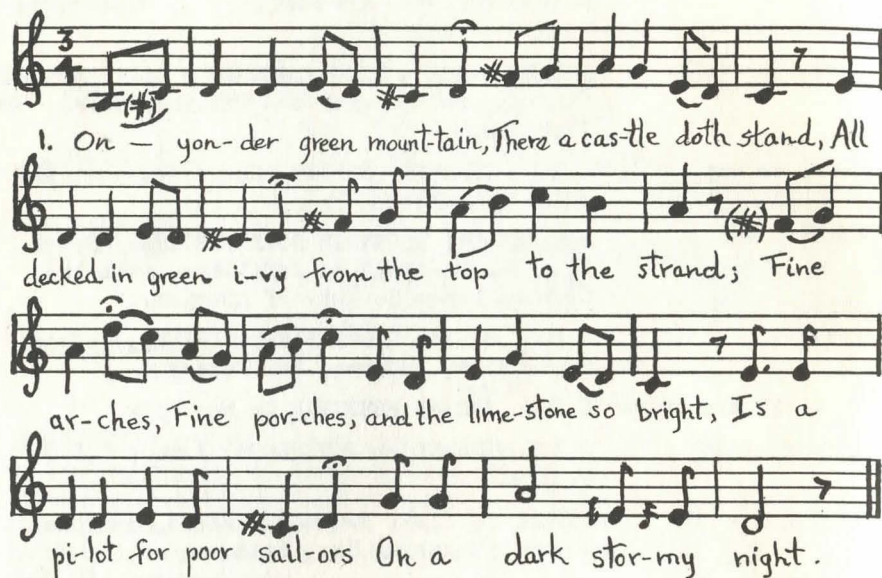 3 4
1. On — yon-der green mount-tain, There a cas-tle doth stand, All
decked in green i-vy from the top to the strand; Fine
ar-ches, Fine por-ches, and the lime-stone so bright, Is a
pi-lot for poor sail-ors On a dark stor-my night.